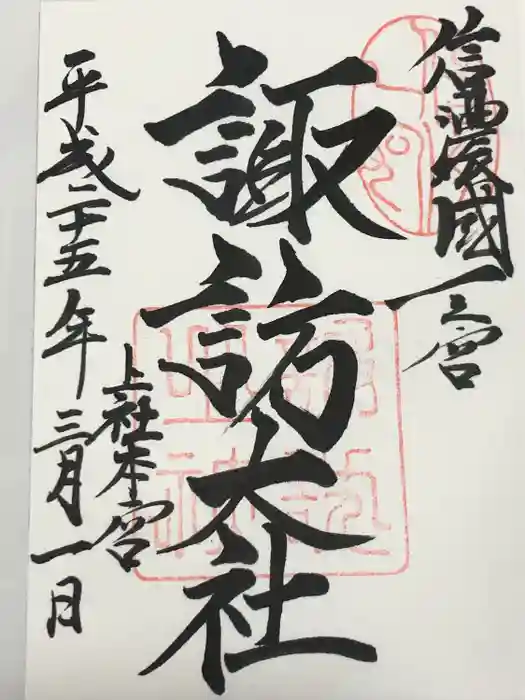 信濃國一之宮
諏訪大社
上社本宮
平成二十五年三月一日